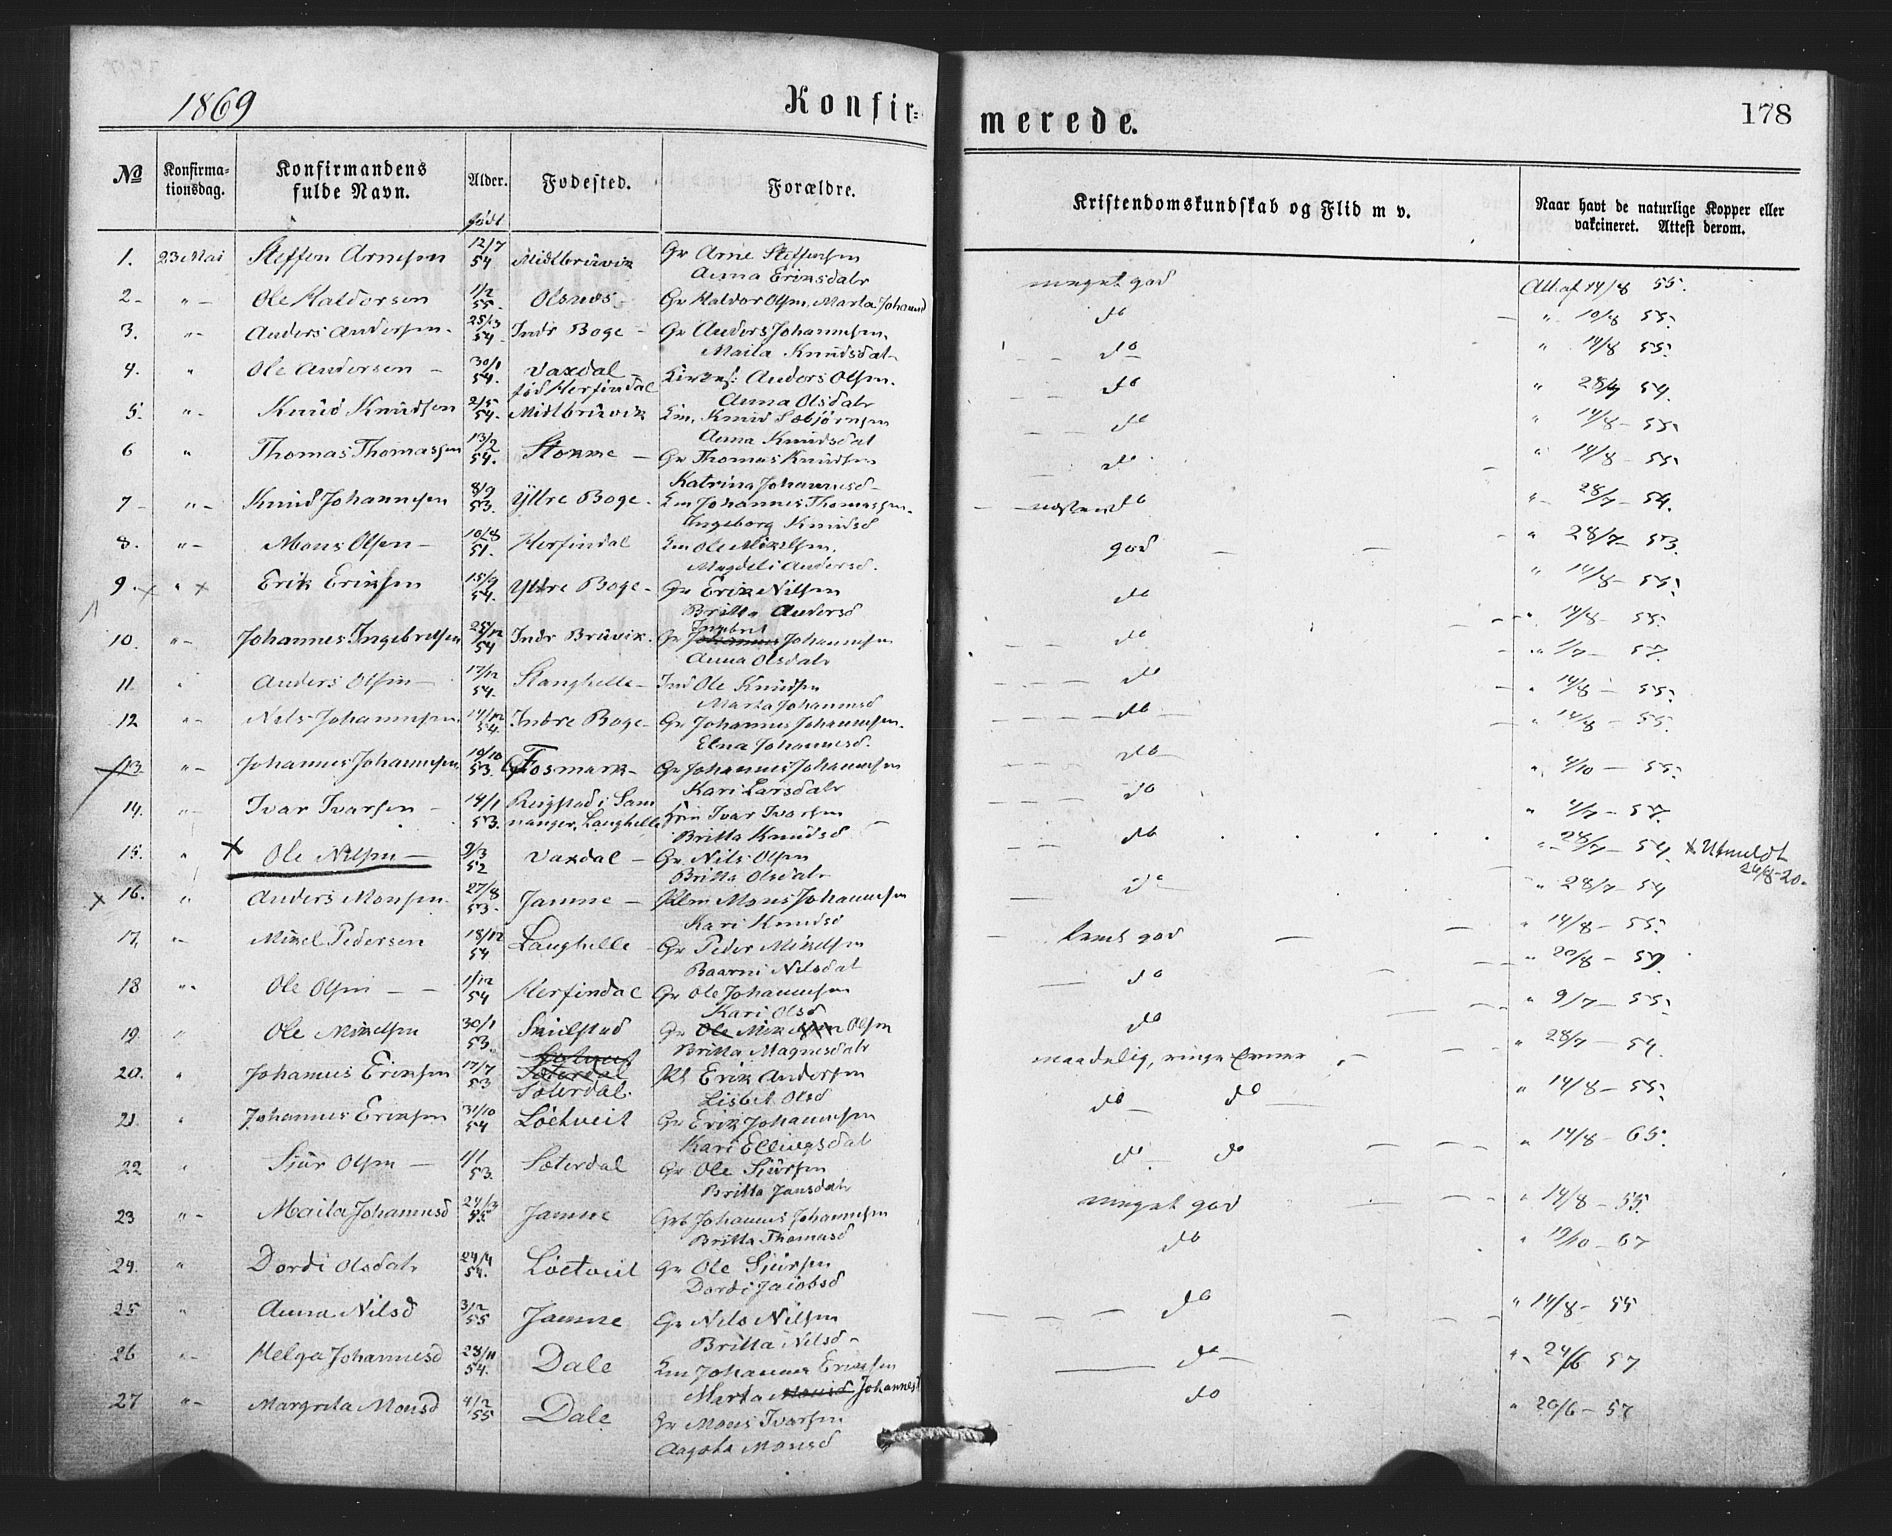 1869 Konfir=
merede. 178
No Konfirma- tionsdag. Konfirmandens fulde Navn. Alder. født Fødested. Forældre.
Kristendomskundskab og Flid m v. Naar havt de naturlige Kopper eller vakcineret. Attest derom.
1. 23 Mai Steffen Arnesen 12/7 54 Midtbruvik Gr Arne Steffensen
Anna Eriksdatr meget god Att af 14/8 55.
2 - " - Ole Haldorsen 1/2 55. Olsnes - Gr Haldor Olsn. Marta Johannd do " 10/8 55.
3. " - Anders Andersen - 54 Indr Boge - Gr Anders Johannesen.
Maila Knudsdatr do " 14/8 55.
4. " Ole Andersen - 30/1 54. Vaxdal - Anders Olsen.
fød Herfindal Anna Olsdatr do " 28/7 54.
5. " - Knud Knudsen 2/5 54. Midtbruvik Em. Knud Sebjørnsen
Anna Knudsdat do " 14/8 - 55.
6 " Thomas Thomassen 13/2 54. Stamne - Gr Thomas Knudsen
Katrina Johannesd - do " 14/8 - 55.
7 - " - Knud Johannesen 8/9 53. Yttre Boge - Em Johannes Thomassen.
Ingeborg Knudsd do " - 28/7 - 54.
8. " - Mons Olsen - 10/8 51. Herfindal Em Ole Mikelsen.
Magdeli Andersd. god " 28/7 - 53.
9 . x " x Erik Eriksen 15/9 54. Yttre Boge - Gr Erik Nilsen
Britta Andersd do " 14/8 - 55.
10. " - Johannes Ingebretsen 25/12 54 Indr Bruvik. Gr Johannes Ingebret Johannesen
Anna Olsdatr do " 14/8 - 55.
11 " Anders Olsen - 17/12 54. Stanghelle - Ind Ole Knudsen
Marta Johannesd do " 1/7 - 57.
12 " - Nils Johannesen 14/12 54. Indre Boge - Gr Johannes Johannesen.
Elna Johannesd. do " 14/8 - 55.
13. " - Johannes Johannesen 53. Fosmark - Gr Johannes Johannesen
Kari Larsdatr do " 14/8 - 55.
14. " - Ivar Ivarsen - 14/1 53. Reigstad i Sam
nanger, Langhelle Em Ivar Ivarsen
Britta Knudsd - do " 4/10 - 55.
15. " x Ole Nilsen - 9/3 52 Vaxdal - Gr. Nils Olsen
Britta Olsdatr do " 4/7 - 57.
x Utmeldt
x 16. " Anders Monsen. 27/8 53. Jamne - Plm Mons Johannesen
Kari Knudsd do " 28/7 - 54.
17. " - Mikel Pedersen 18/12 54 Langhelle - Gr Peder Mikelsen
Baarni Nilsdat god " 28/7 54
18 " - Ole Olsen - - 1/12 54 Herfindal Gr Ole Johannesen
Kari Olsd do " 14/8 - 55.
19. " Ole Mikelsen 30/1 53. Skulstad Gr Ole Mikelsen Olsen
Britta Magnesdatr do " 20/8 - 59.
20. " Johannes Eriksen 17/7 53 Soterdal
Soterdal. Pl. Erik Andersen
Lisbet Olsd maadelig, ringe Evner " 9/7 - 55.
21. " Johannes Eriksen 31/10 54 Løctveit Gr Erik Johannesen
Kari Ellingsdat do - do " 28/7 - 54.
22 " Sjur Olsen - 1/1 53. Soterdal Gr Ole Sjursen
Britta Jansdatr do - do " 14/8 - 55.
23 " - Maila Johannesd 24/3 55. Jamne Johannes Johannesen
Britta Thomasd meget god " 14/8 - 65.
24. " Dordi Olsdatr 24/4 54. Løctveit Gr Ole Sjursen
Dordi Jacobsd do " 14/8 - 55.
25 " Anna Nilsd 3/2 55 Jamne Gr Nils Nilsen
Britta Nilsd - do " 19/10 - 67
" 14/8 - 55
26 " - Helga Johannesd 28/11 54. Dale Em Johannes Eriksen
Marta Monsd Johannesd do - " 24/6 57
27 " - Margreta Monsd 4/2 55 Dale Gr Mons Ivarsen
Aagota Monsd do " 20/6 - 57